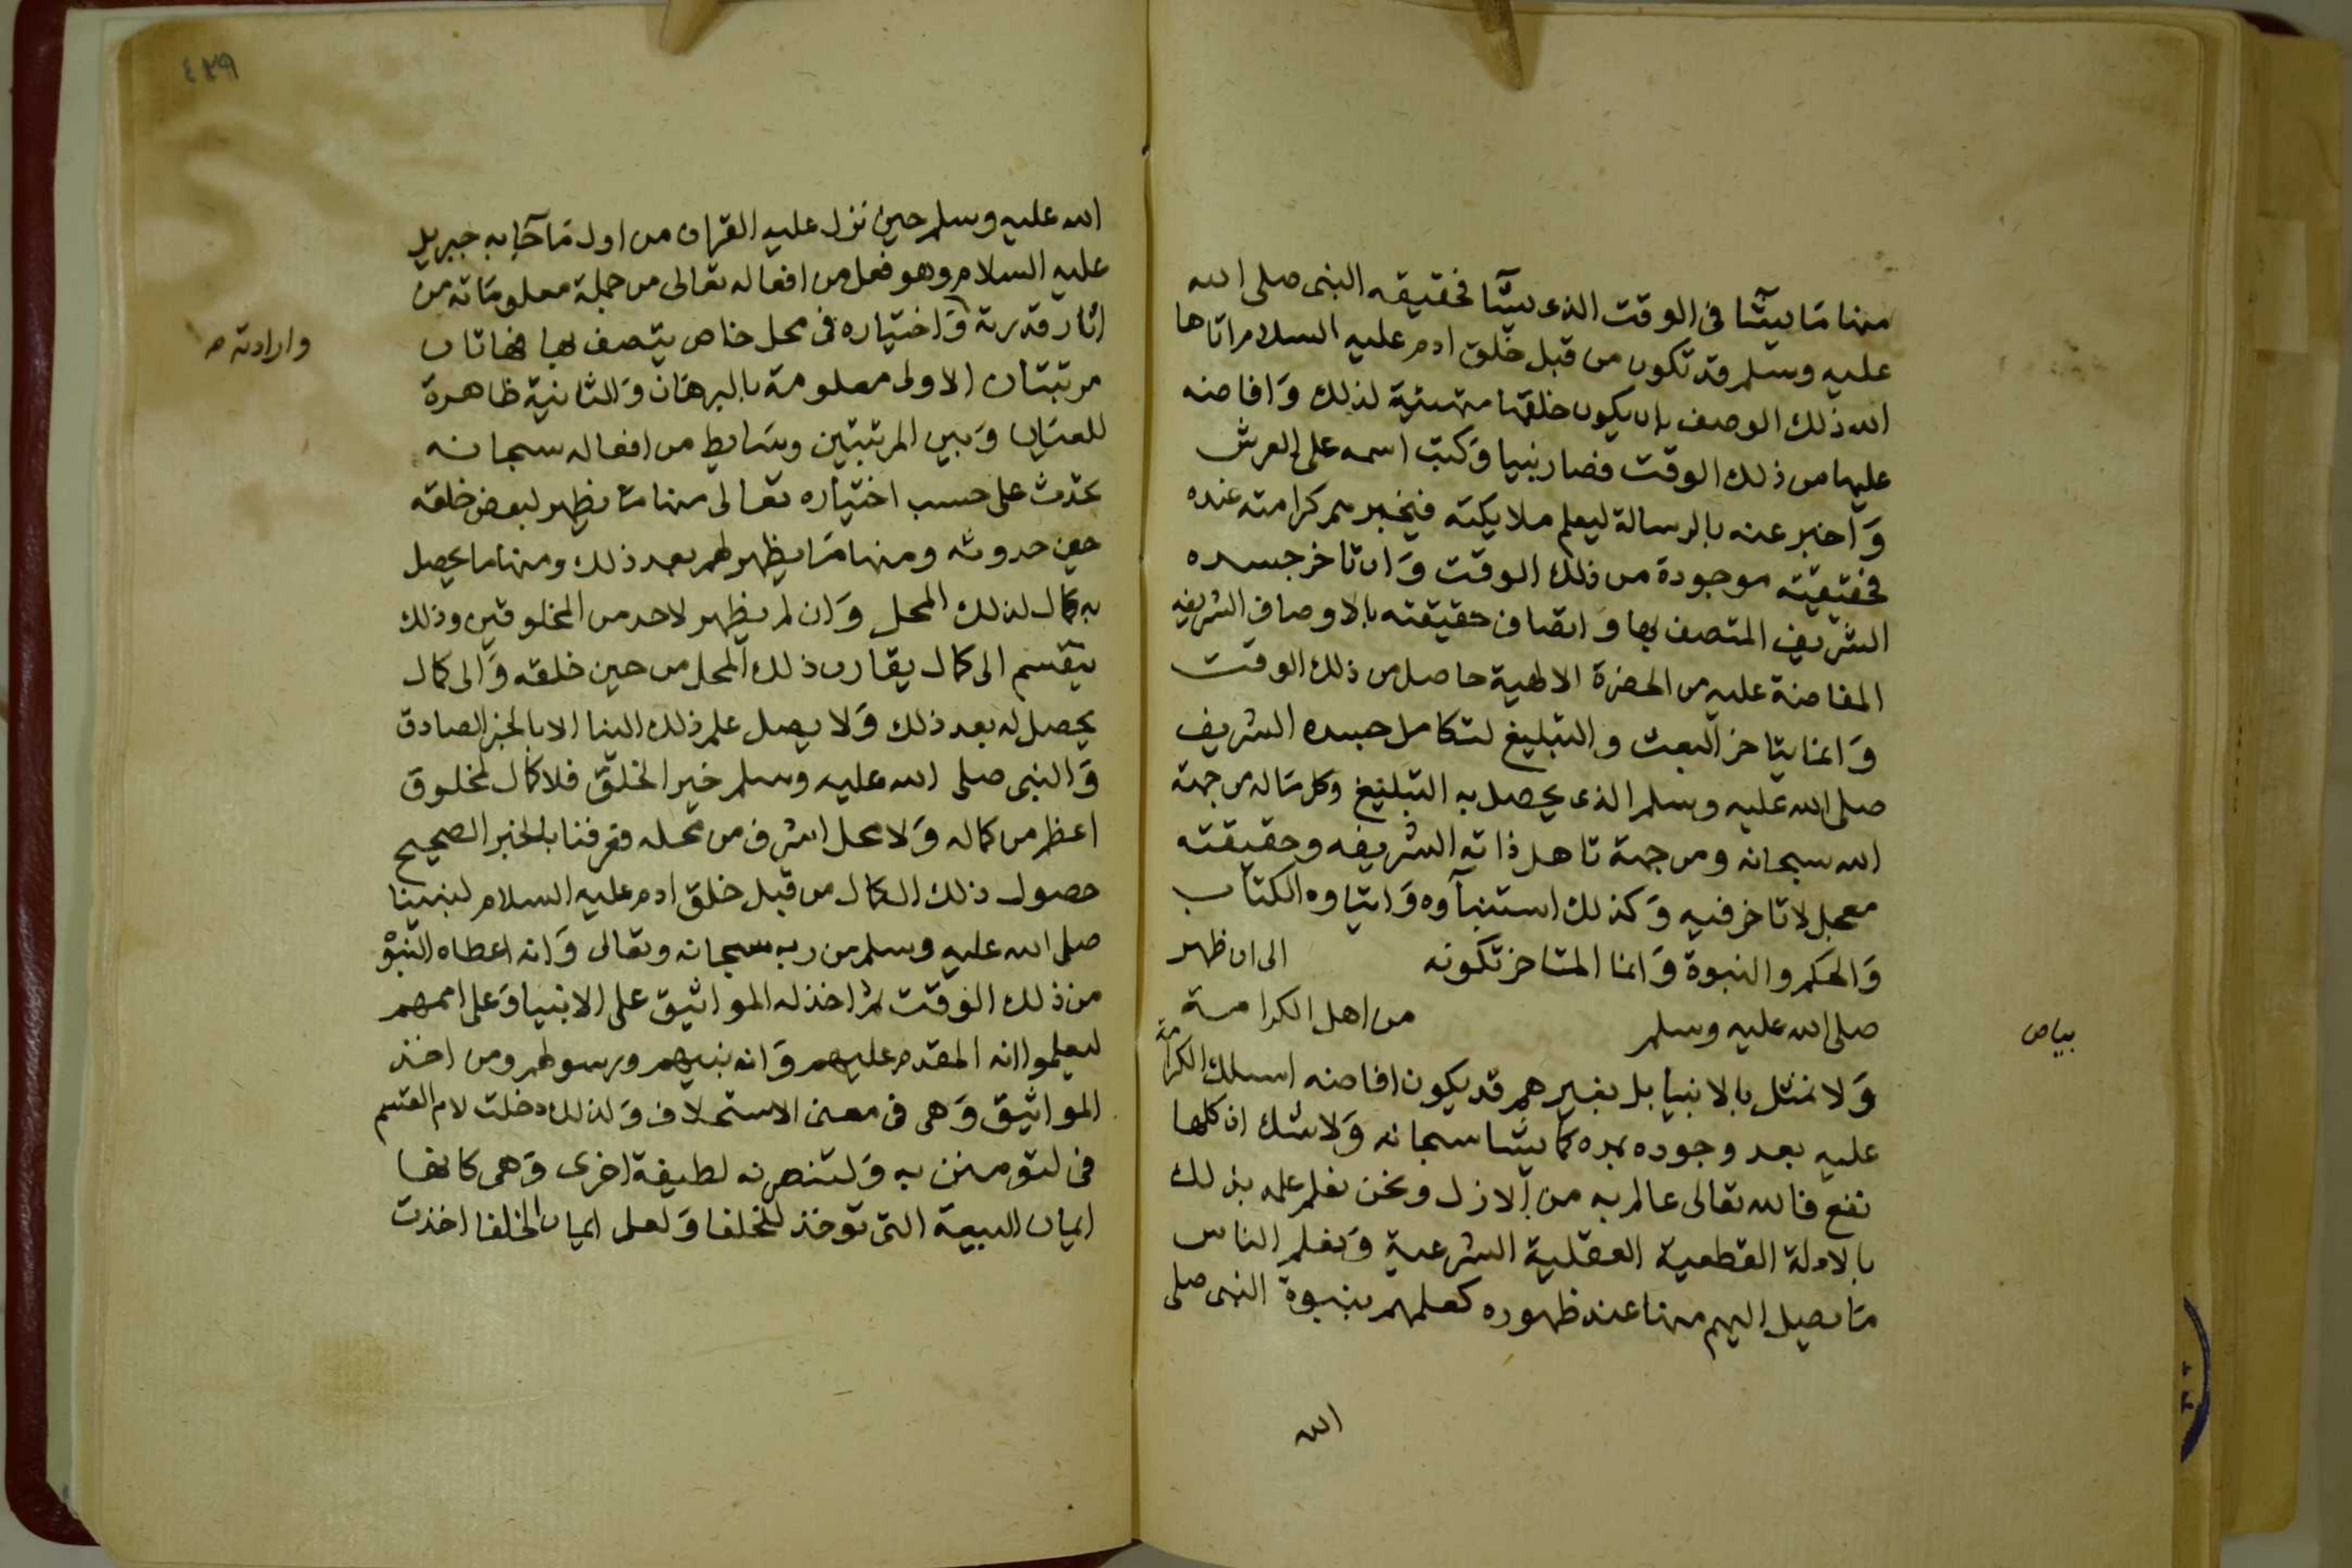 منها ما يشآ فى الوقت الذى يشآ فحقيقه النبى صلى الله
عليه وسلم قد تكون من قبل خلق ادم عليه السلام اتاها
الله ذلك الوصف بان يكون خلقها متهيئية لذلك وافاضه
عليها من ذلك الوقت فصار نبيا وكتب اسمه على العرش
واخبر عنه بالرسالة ليعلم ملايكته فيخبرهم كرامته عنده
فحقيقته موجودة من ذلك الوقت وان تاخر جسده
الشريف المتصف بها واتصاف حقيقته بالاوصاف الشريفه
المفاضة عليه من الحضرة الالهية حاصل من ذلك الوقت
وانما يتاخر البعث والتبليغ لتكامل جسده الشريف
صلى الله عليه وسلم الذى يحصل به التبليغ وكل ماله من جهة
الله سبحانه ومن جهة تاهل ذاته الشريفه وحقيقته
معجل لا تاخر فيه وكذلك استنبآوه وايتاوه الكتاب
والحكم والنبوة وانما المتاخر تكونه الى ان ظهر
صلى الله عليه وسلم من اهل الكرامة
بياض
ولا نمثل بالانبيا بل بغيرهم قد يكون افاضه اسلك الكرامة
عليه بعد وجوده بمده كما يشا سبحانه ولا شك ان كلها
تقع فالله تعالى عالم به من الازل ونحن نعلم علمه بذلك
بالادلة القطعية العقلية الشرعية ويعلم الناس
ما يصل اليهم منها عند ظهوره كعلمهم بنبوة النبى صلى
الله
٤٢٩
الله عليه وسلم حين نزل عليه القران من اول ما جآ به جبريل
عليه السلام وهو فعل من افعاله تعالى من جملة معلوماته من
اثار قدرته واختياره فى محل خاص يتصف بها فهاتان
وارادته صح
مرتبتان الاولى معلومة بالبرهان والثانية ظاهرة
للعيان وبين المرتبتين وسايط من افعاله سبحانه
تحدث على حسب اختياره تعالى منها ما يظهر لبعض خلقه
حين حدوثه ومنها ما يظهر لهم بعد ذلك ومنها ما يحصل
به كمال لذلك المحل وان لم يظهر لاحد من المخلوقين وذلك
ينقسم الى كمال يقارن ذلك المحل من حين خلقه والى كمال
يحصل له بعد ذلك ولا يصل علم ذلك الينا الا بالخبر الصادق
والنبى صلى الله عليه وسلم خير الخلق فلا كمال لمخلوق
اعظم من كماله ولا محل اشرف من محله فعرفنا بالخبر الصحيح
حصول ذلك الكمال من قبل خلق ادم عليه السلام لنبينا
صلى الله عليه وسلم من ربه سبحانه وتعالى وانه اعطاه النبوة
من ذلك الوقت ثم اخذ له المواثيق على الانبيا وعلى اممهم
ليعلموا انه المقدم عليهم وانه نبيهم ورسولهم ومن اخذ
المواثيق وهى فى معنى الاستحلاف ولذلك دخلت لام القسم
فى لتومنن به ولتنصرنه لطيفة اخرى وهى كانها
ايمان البيعة التى توخذ للخلفا ولعل ايمان الخلفا اخذت